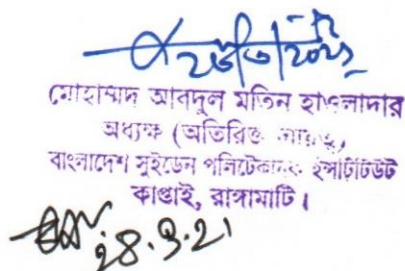 ২৮/৩/২০২১
মোহাম্মদ আবদুল মতিন হাওলাদার
অধ্যক্ষ (অতিরিক্ত দায়িত্ব)
বাংলাদেশ সুইডেন পলিটেকনিক ইন্সটিটিউট
কাপ্তাই, রাঙ্গামাটি।
28.3.21